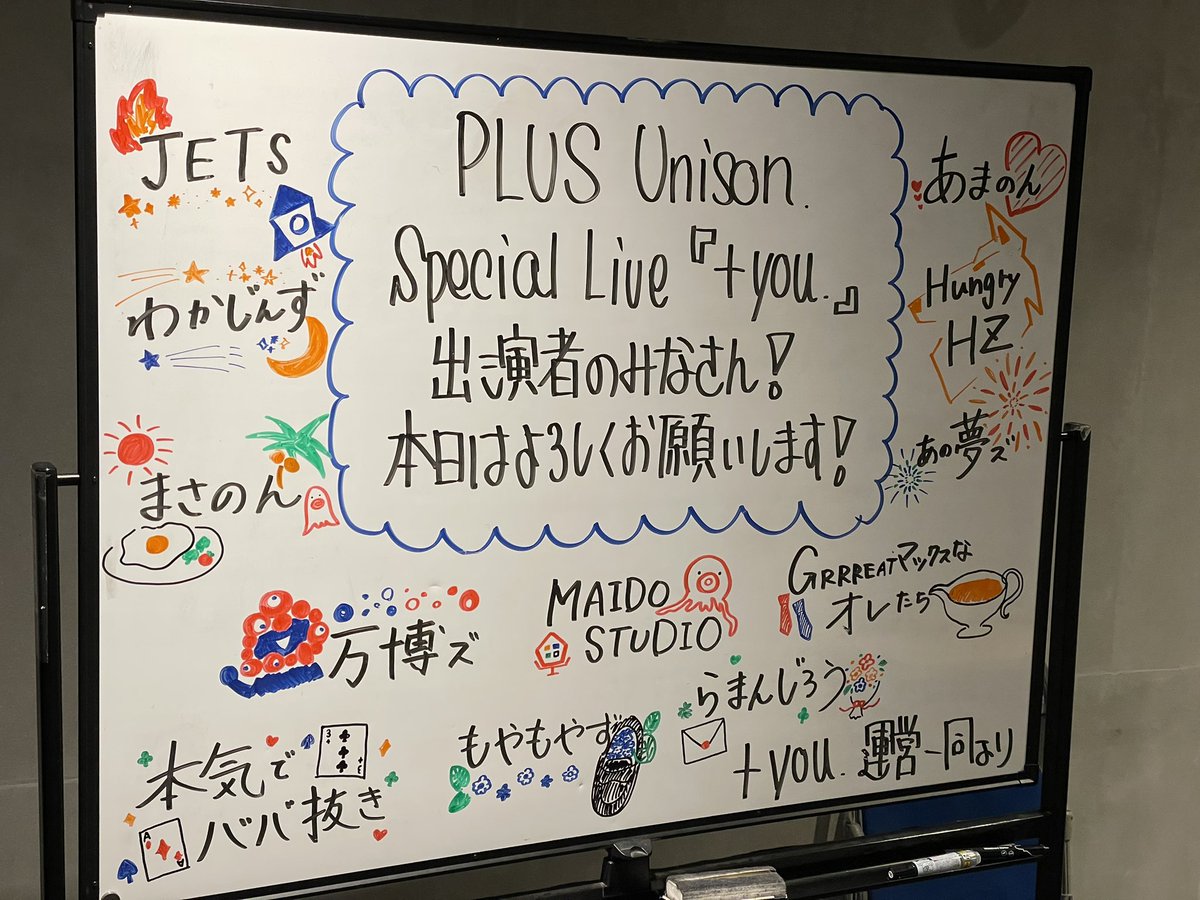 PLUS Unison.
Special Live『+you.』
出演者のみなさん!
本日はよろしくお願いします!
JETS
わかじんず
まさのん
あまのん
Hungry
HZ
あの夢ズ
万博ズ
MAIDO
STUDIO
GRRREATマックスな
オレたち
らまんじろう
本気で
ババ抜き
もやもやず
+you. 運営一同より
3
3
A
A